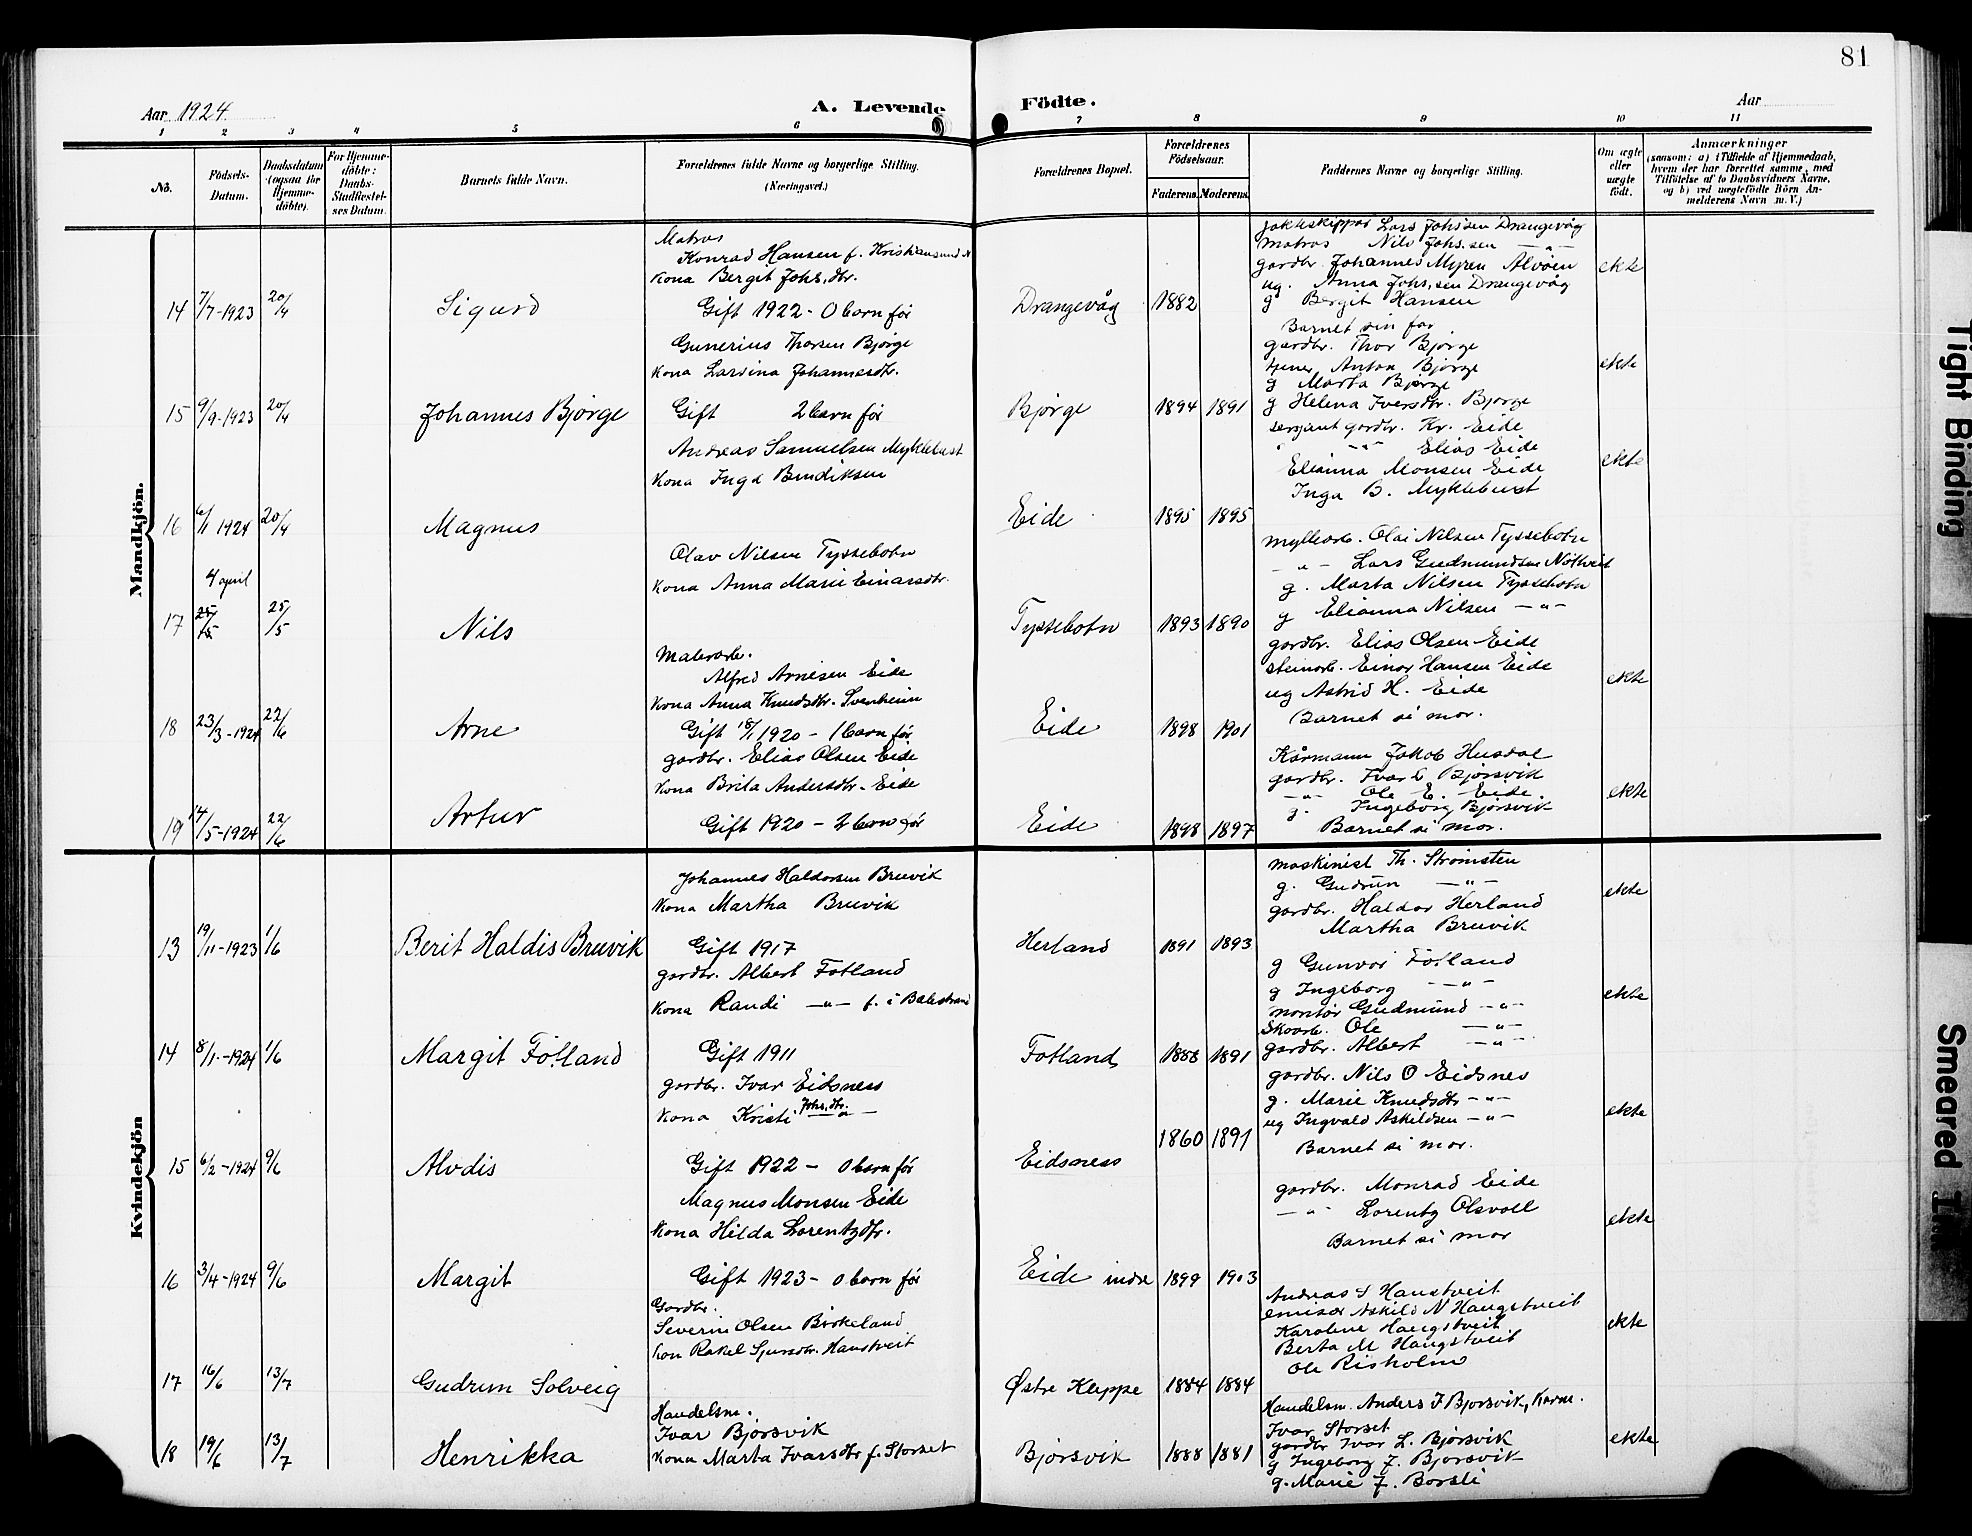 81
Aar 1924
A. Levende Födte.
Aar
1 2 3 4 5 6 7 8 9 10 11
No.
Födsels-Datum.
Daabsdatum (ogsaa for Hjemme-döbte).
For Hjemme-döbte: Daabs-Stadfæstel-ses Datum.
Barnets fulde Navn.
Forældrenes fulde Navne og borgerlige Stilling. (Næringsvei.)
Forældrenes Bopæl.
Forældrenes Födselsaar.
Faderens. Moderens.
Faddernes Navne og borgerlige Stilling.
Om ægte eller uægte födt.
Anmærkninger
(saasom: a) i Tilfælde af Hjemmedaab, hvem der har forrettet samme, med Tilföielse af to Daabsvidners Navne, og b) ved uægtefödte Börn An-melderens Navn m. V.)
Mandkjön.
14 7/7-1923 20/4 Sigurd
Matros
Konrad Hansen f. Kristiansund N
Kona Bergit Johs.dtr.
Gift 1922 - 0 barn før
Drangevåg 1882
jaktskippar Lars Johs'sen Drangevåg
matros Nils Johs.sen -"-
gardbr. Johannes Myren Alvøen
ug. Anna Johs.sen Drangevåg
g Bergit Hansen
Barnet sin far
ekte
15 9/9-1923 20/4 Johannes Bjørge
Gunerius Thorsen Bjørge
Kona Larsina Johannesdtr.
Gift 2 barn før
Bjørge 1894 1891
gardbr. Thor Bjørge
tjener Anton Bjørge
g Marta Bjørge
g Helena Iversdtr. Bjørge
ekte
16 6/1 1924 20/4 Magnus
Andreas Samuelsen Myklebust
Kona Inga Bendiksen
Eide 1895 1895
sersjant gardbr. Kr. Eide
-"- Elias Eide
Elianna Monsen Eide
Inga B. Myklebust
ekte
17 4 april 25/5 25/5 Nils
Olav Nilsen Tyssebotn
Kona Anna Marie Einarsdtr.
Tyssebotn 1893 1890
myllearb. Olai Nilsen Tyssebotn
-"- Lars Gudmundsen Nøtveit
g. Marta Nilsen Tyssebotn
g Elianna Nilsen -"-
18 23/3-1924 22/6 Arne
Malerarb.
Alfred Arnesen Eide
Kona Anna Knudsdtr. Svenheim
Gift 18/1 1920 - 1 barn før
Eide 1898 1901
gardbr. Elias Olsen Eide
steinarb. Einar Hansen Eide
ug Astrid H. Eide
Barnet si mor.
ekte
19 14/5-1924 22/6 Artur
gardbr. Elias Olsen Eide
Kona Brita Andersdtr. Eide
Gift 1920 - 2 barn før
Eide 1898 1897
Kårmann Jakob Husdal
gardbr. Ivar L Bjørsvik
-"- Ole E. Eide.
g. Ingeborg Bjørsvik
Barnet si mor.
ekte
Kvindekjön
13 19/11-1923 1/6 Berit Haldis Bruvik
Johannes Haldorsen Bruvik
Kona Martha Bruvik
Gift 1917
Herland 1891 1893
maskinist Th. Strømsten
g. Gudrun -"-
gardbr. Haldor Herland
Martha Bruvik
ekte
14 8/1-1924 1/6 Margit Fotland
gardbr. Albert Fotland
Kona Randi -"- f. i Balestrand
Gift 1911
Fotland 1888 1891
g Gunvor Fotland
g Ingeborg -"-
montør Gudmund -"-
Skoarb. Ole -"-
gardbr. Albert -"-
ekte
15 6/2-1924 9/6 Alvdis
gardbr. Ivar Eidsness
Kona Kristi Johs.dtr. -"-
Gift 1922 - 0 barn før
Eidsness 1860 1891
gardbr. Nils O Eidsnes
g. Marie Knudsdtr -"-
ug Ingvald Askildsen -"-
Barnet si mor.
ekte
16 3/4-1924 9/6 Margit
Magnus Monsen Eide
Kona Hilda Lorentzdtr.
Gift 1923 - 0 barn før
Eide indre 1899 1903
gardbr. Monrad Eide
-"- Lorentz Olsvoll
Barnet si mor
ekte
17 16/6 13/7 Gudrun Solveig
Gardbr.
Severin Olsen Birkeland
Kon Rakel Sjursdtr. Haustveit
Østre Kleppe 1884 1884
Andreas S Haustveit
emisær Askild N Haugstveit
Karoline Haugstveit
Berta M Haugstveit
Ole Risholm
ekte
18 19/6 13/7 Henrikka
Handelsm.
Ivar Bjørsvik
Kona Marta Ivarsdtr f. Storset
Bjørsvik 1888 1881
Handelsm. Anders I Bjørsvik, Kårm.
Ivar Storset
gardbr Ivar L. Bjørsvik
g Ingeborg J. Bjørsvik
g. Marie J. Borsli
ekte
Tight Binding
Smeared Ink